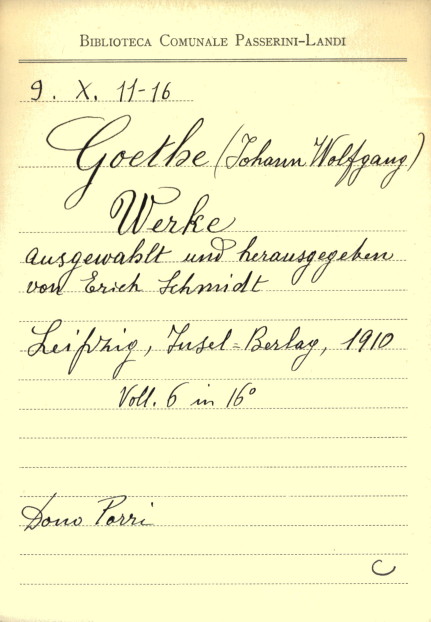 BIBLIOTECA COMUNALE PASSERINI-LANDI
9. X. 11-16
Goethe (Johann Wolfgang)
Werke
ausgewahlt und herausgegeben
von Erich Schmidt
Leipzig, Insel-Berlag, 1910
Voll. 6 in 16°
Dono Porri
C